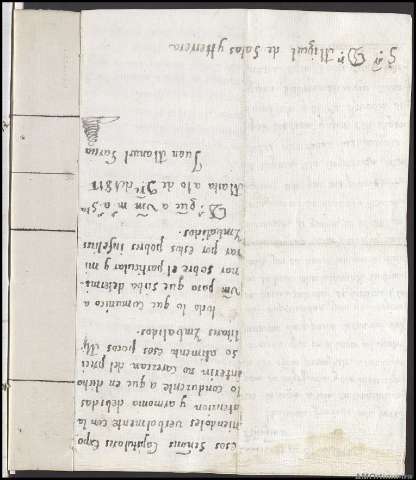 esos Señores Capitulares Expo
niendoles verbalmente con la
atencion y armonia debidas
lo conducente a que en dicho
interin no carezcan del preci
so alimento esos pocos Mi
litares Imbalidos.
todo lo que comunico a
Vm para que sirba determi-
nar sobre el particular y mi
rar por estos pobres infelices
Imbalidos.
Ds gue a Vm m. a.
a 10 de de 1811
Juan Manuel
Sr. Dn. Miguel de Salas y Herrera.